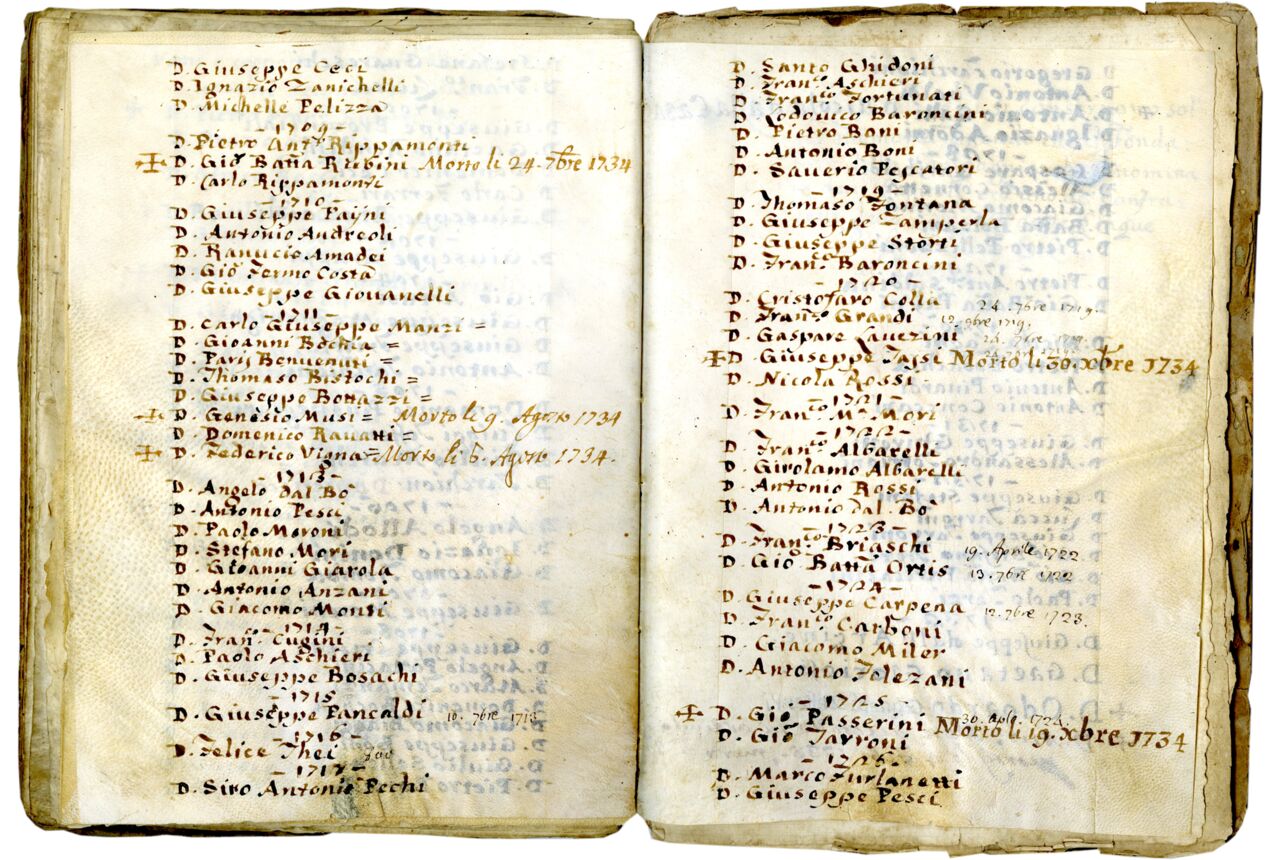 D. Giuseppe Ceci
D. Ignazio Zanichelli
D. Michelle Pelizza
- 1709 -
D. Pietro Antº Rippamonti
D. Gio Batta Rubini Morto li 24. 7bre 1734
D. Carlo Rippamonti
- 1710 -
D. Giuseppe Payni
D. Antonio Andreoli
D. Ranucio Amadei
D. Gio Fermo Costa
D. Giuseppe Giovanelli
- 1711 -
D. Carlo Giuseppe Manzi =
D. Gioanni Bochia =
D. Paris Benvenuti =
D. Thomaso Bistochi =
D. Giuseppe Bottazzi =
D. Genesio Musi = Morto li 9. Agosto 1734
D. Domenico Ravatti =
D. Federico Vigna = Morto li 6. Agosto 1734.
- 1713 -
D. Angelo dal Bo
D. Antonio Pesci
D. Paolo Moroni
D. Stefano Mori
D. Gioanni Giarola
D. Antonio Anzani
D. Giacomo Monti
- 1714 -
D. Franº Cugini
D. Paolo Aschieri
D. Giuseppe Bosachi
- 1715 -
D. Giuseppe Pancaldi 10. 7bre 1713
- 1716 -
D. Felice Thei
- 1717 -
D. Siro Antonio Pechi
D. Santo Ghidoni
D. Franº Aschieri
D. Francº Fortunati
D. Lodovico Baroncini
D. Pietro Boni
D. Antonio Boni
D. Saverio Pescatori
- 1719 -
D. Thomaso Fontana
D. Giuseppe Zamperla
D. Giuseppe Storti
D. Franº Baroncini
- 1720 -
D. Cristofaro Colla 24. 7bre 1719.
D. Franº Grandi 12. 9bre 1719.
D. Gaspare Laverini
D. Giuseppe Tassi Morto li 30. xbre 1734
D. Nicola Rossi
- 1721 -
D. Francº Mª Mori
- 1722 -
D. Francº Albarelli
D. Girolamo Albarelli
D. Antonio Rossi
D. Antonio dal Bo
- 1723 -
D. Francº Briaschi 19. Aprile 1722
D. Gio Batta Ortis 13. 7bre 1722
- 1724 -
D. Giuseppe Carpena 12. 7bre 1723.
D. Francº Carboni
D. Giacomo Milor
D. Antonio Folezani
- 1725 -
D. Gio Passerini 30. aple. 1724. Morto li 19. xbre 1734
D. Gio Tarroni
- 1726 -
D. Marco Furlanetti
D. Giuseppe Pesci